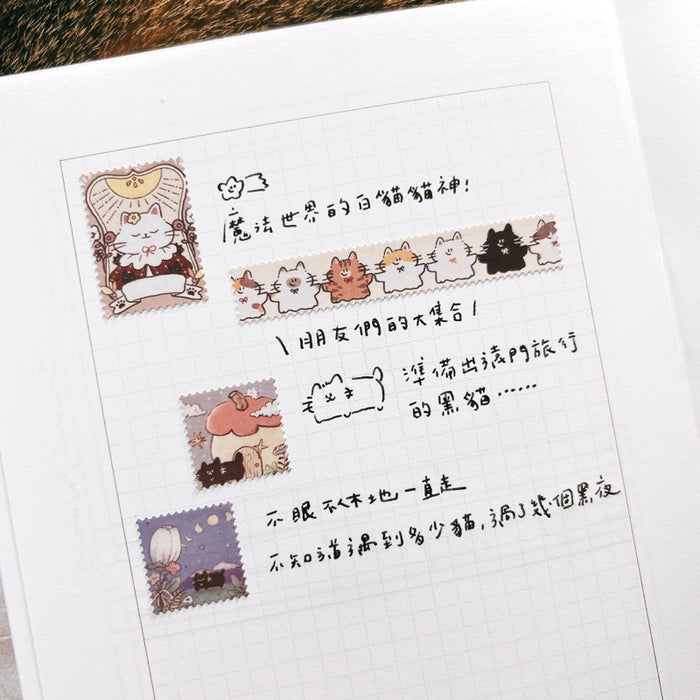 魔法世界的白貓貓神!
\朋友們的大集合/
準備出遠門旅行
的黑貓……
不眠不休地一直走
不知道遇到多少貓,過了幾個黑夜